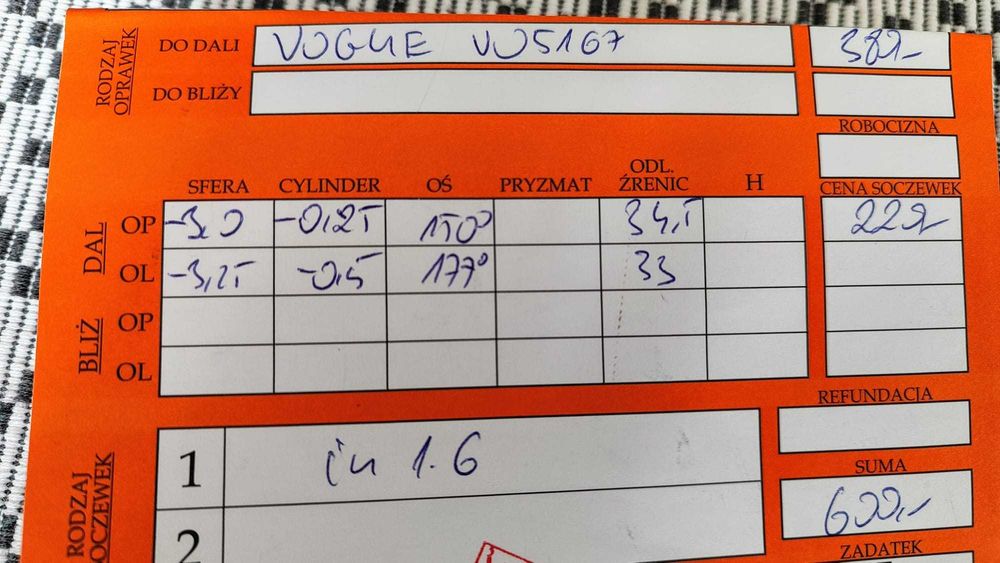 RODZAJ OPRAWEK
DO DALI VOGUE VO5167 382,-
DO BLIŻY
ROBOCIZNA
SFERA CYLINDER OŚ PRYZMAT ODL. ŹRENIC H CENA SOCZEWEK
DAL
OP -3,0 -0,25 150° 34,5
OL -3,25 -0,5 177° 33
BLIŻ
OP
OL
REFUNDACJA
RODZAJ
1 in 1.6
SUMA
600,-
2
ZADATEK